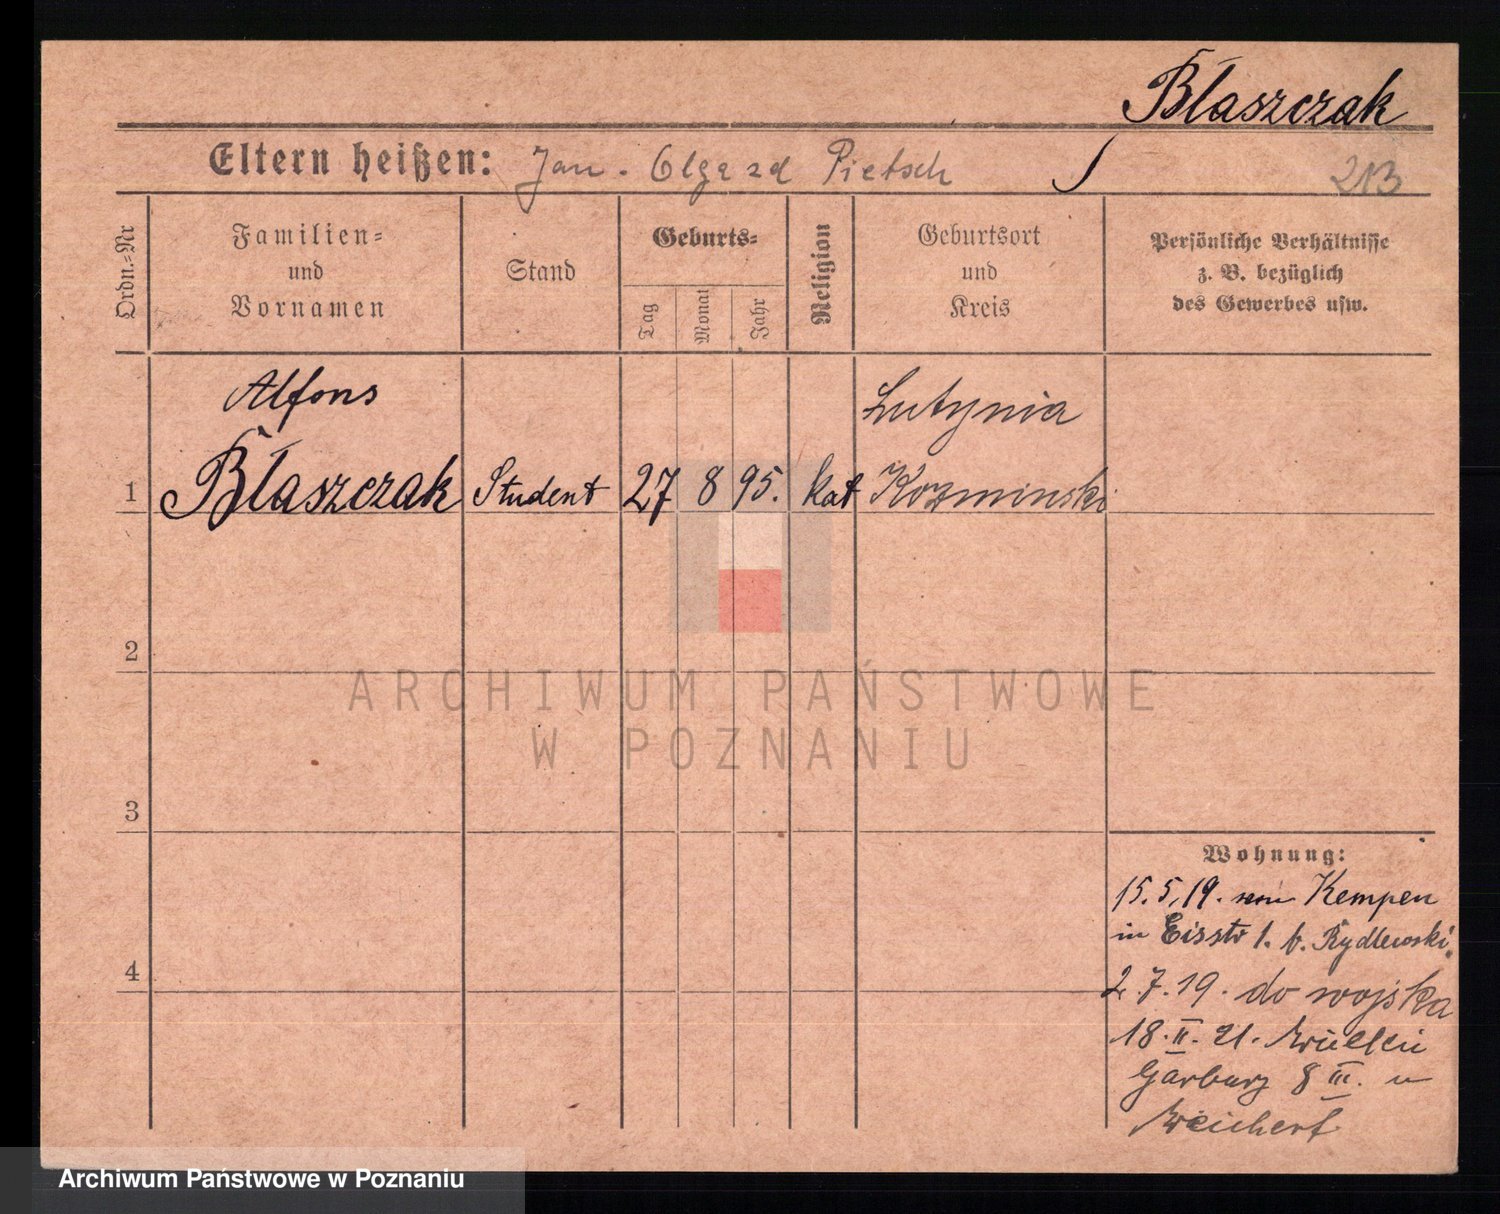 Błaszczak
Eltern heißen: Jan - Olga zd Pietsch
213
Ordn.-Nr
Familien-
und
Vornamen
Stand
Geburts-
Tag
Monat
Jahr
Religion
Geburtsort
und
Kreis
Persönliche Verhältnisse
z. B. bezüglich
des Gewerbes usw.
Alfons
Lutynia
1 Błaszczak Student 27 8 95. kat Kozminski
2
3
4
Wohnung:
15.5.19. von Kempen
in Eisstr 1. b. Rydlewski.
2.7.19. do wojska
18.II.21. Wielkie
Garbary 8 III. u
Weichert
ARCHIWUM PAŃSTWOWE
W POZNANIU
Archiwum Państwowe w Poznaniu